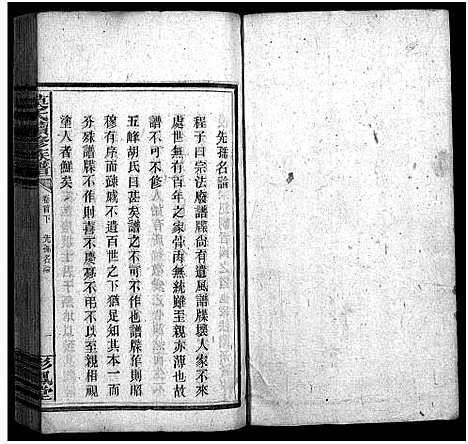 先儒名論
程子曰宗法廢譜牒尚有遺風譜牒壞人家不來
處世無有百年之家骨肉無統雖至親亦薄也故
譜不可不修
五峰胡氏曰甚矣譜之不可不作也譜牒作則昭
穆有序而疎戚不遺百世之下猶足知其本一而
分殊譜牒不作則喜不慶憂不弔不以至親相視
塗人者鮮矣
氏續修族譜
卷首下
先儒名論
一
彩鳳堂